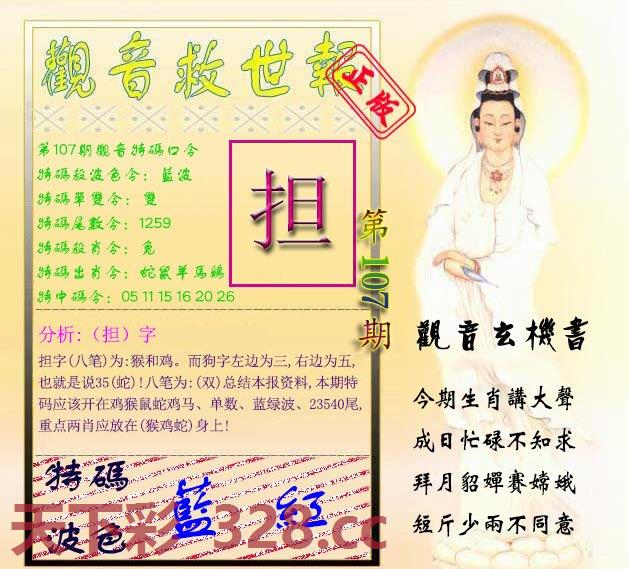 觀音救世報
正版
第107期觀音特碼口令
特碼殺波色令：藍波
特碼單雙令：雙
特碼尾數令：1259
特碼殺肖令：兔
特碼出肖令：蛇鼠羊馬鷄
特中碼令：05 11 15 16 20 26
担
第107期
分析:（担）字
担字(八笔)为:猴和鸡。而狗字左边为三,右边为五,
也就是说35(蛇)!八笔为:(双)总结本报资料,本期特
码应该开在鸡猴鼠蛇鸡马、单数、蓝绿波、23540尾,
重点两肖应放在(猴鸡蛇)身上!
特碼
波色
藍 紅
天下彩 328.cc
觀音玄機書
今期生肖講大聲
成日忙碌不知求
拜月貂嬋賽嫦娥
短斤少兩不同意